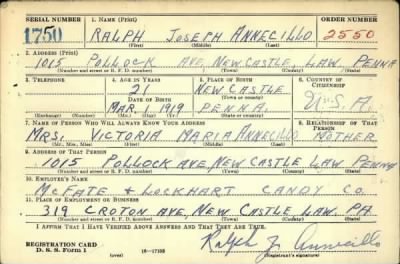 SERIAL NUMBER 1. NAME (Print) ORDER NUMBER
1750 RALPH JOSEPH ANNECILLO 2550
(First) (Middle) (Last)
2. ADDRESS (Print)
1015 POLLOCK AVE, NEW CASTLE, LAW. PENNA
(Number and street or R. F. D. number) (Town) (County) (State)
3. TELEPHONE 4. AGE IN YEARS 5. PLACE OF BIRTH 6. COUNTRY OF CITIZENSHIP
21 NEW CASTLE
DATE OF BIRTH (Town or county) U.S.A.
MAR. 1 1919 PENNA.
(Exchange) (Number) (Mo.) (Day) (Yr.) (State or country)
7. NAME OF PERSON WHO WILL ALWAYS KNOW YOUR ADDRESS 8. RELATIONSHIP OF THAT PERSON
MRS. VICTORIA MARIA ANNECILLO MOTHER
(Mr., Mrs., Miss) (First) (Middle) (Last)
9. ADDRESS OF THAT PERSON
1015 POLLOCK AVE, NEW CASTLE LAW. PENNA
(Number and street or R. F. D. number) (Town) (County) (State)
10. EMPLOYER'S NAME
MCFATE & LOCKHART CANDY CO.
11. PLACE OF EMPLOYMENT OR BUSINESS
319 CROTON AVE, NEW CASTLE LAW. PA
(Number and street or R. F. D. number) (Town) (County) (State)
I AFFIRM THAT I HAVE VERIFIED ABOVE ANSWERS AND THAT THEY ARE TRUE.
REGISTRATION CARD
D. S. S. Form 1 (over) 16-17105 Ralph J. Annecillo
(Registrant's signature)